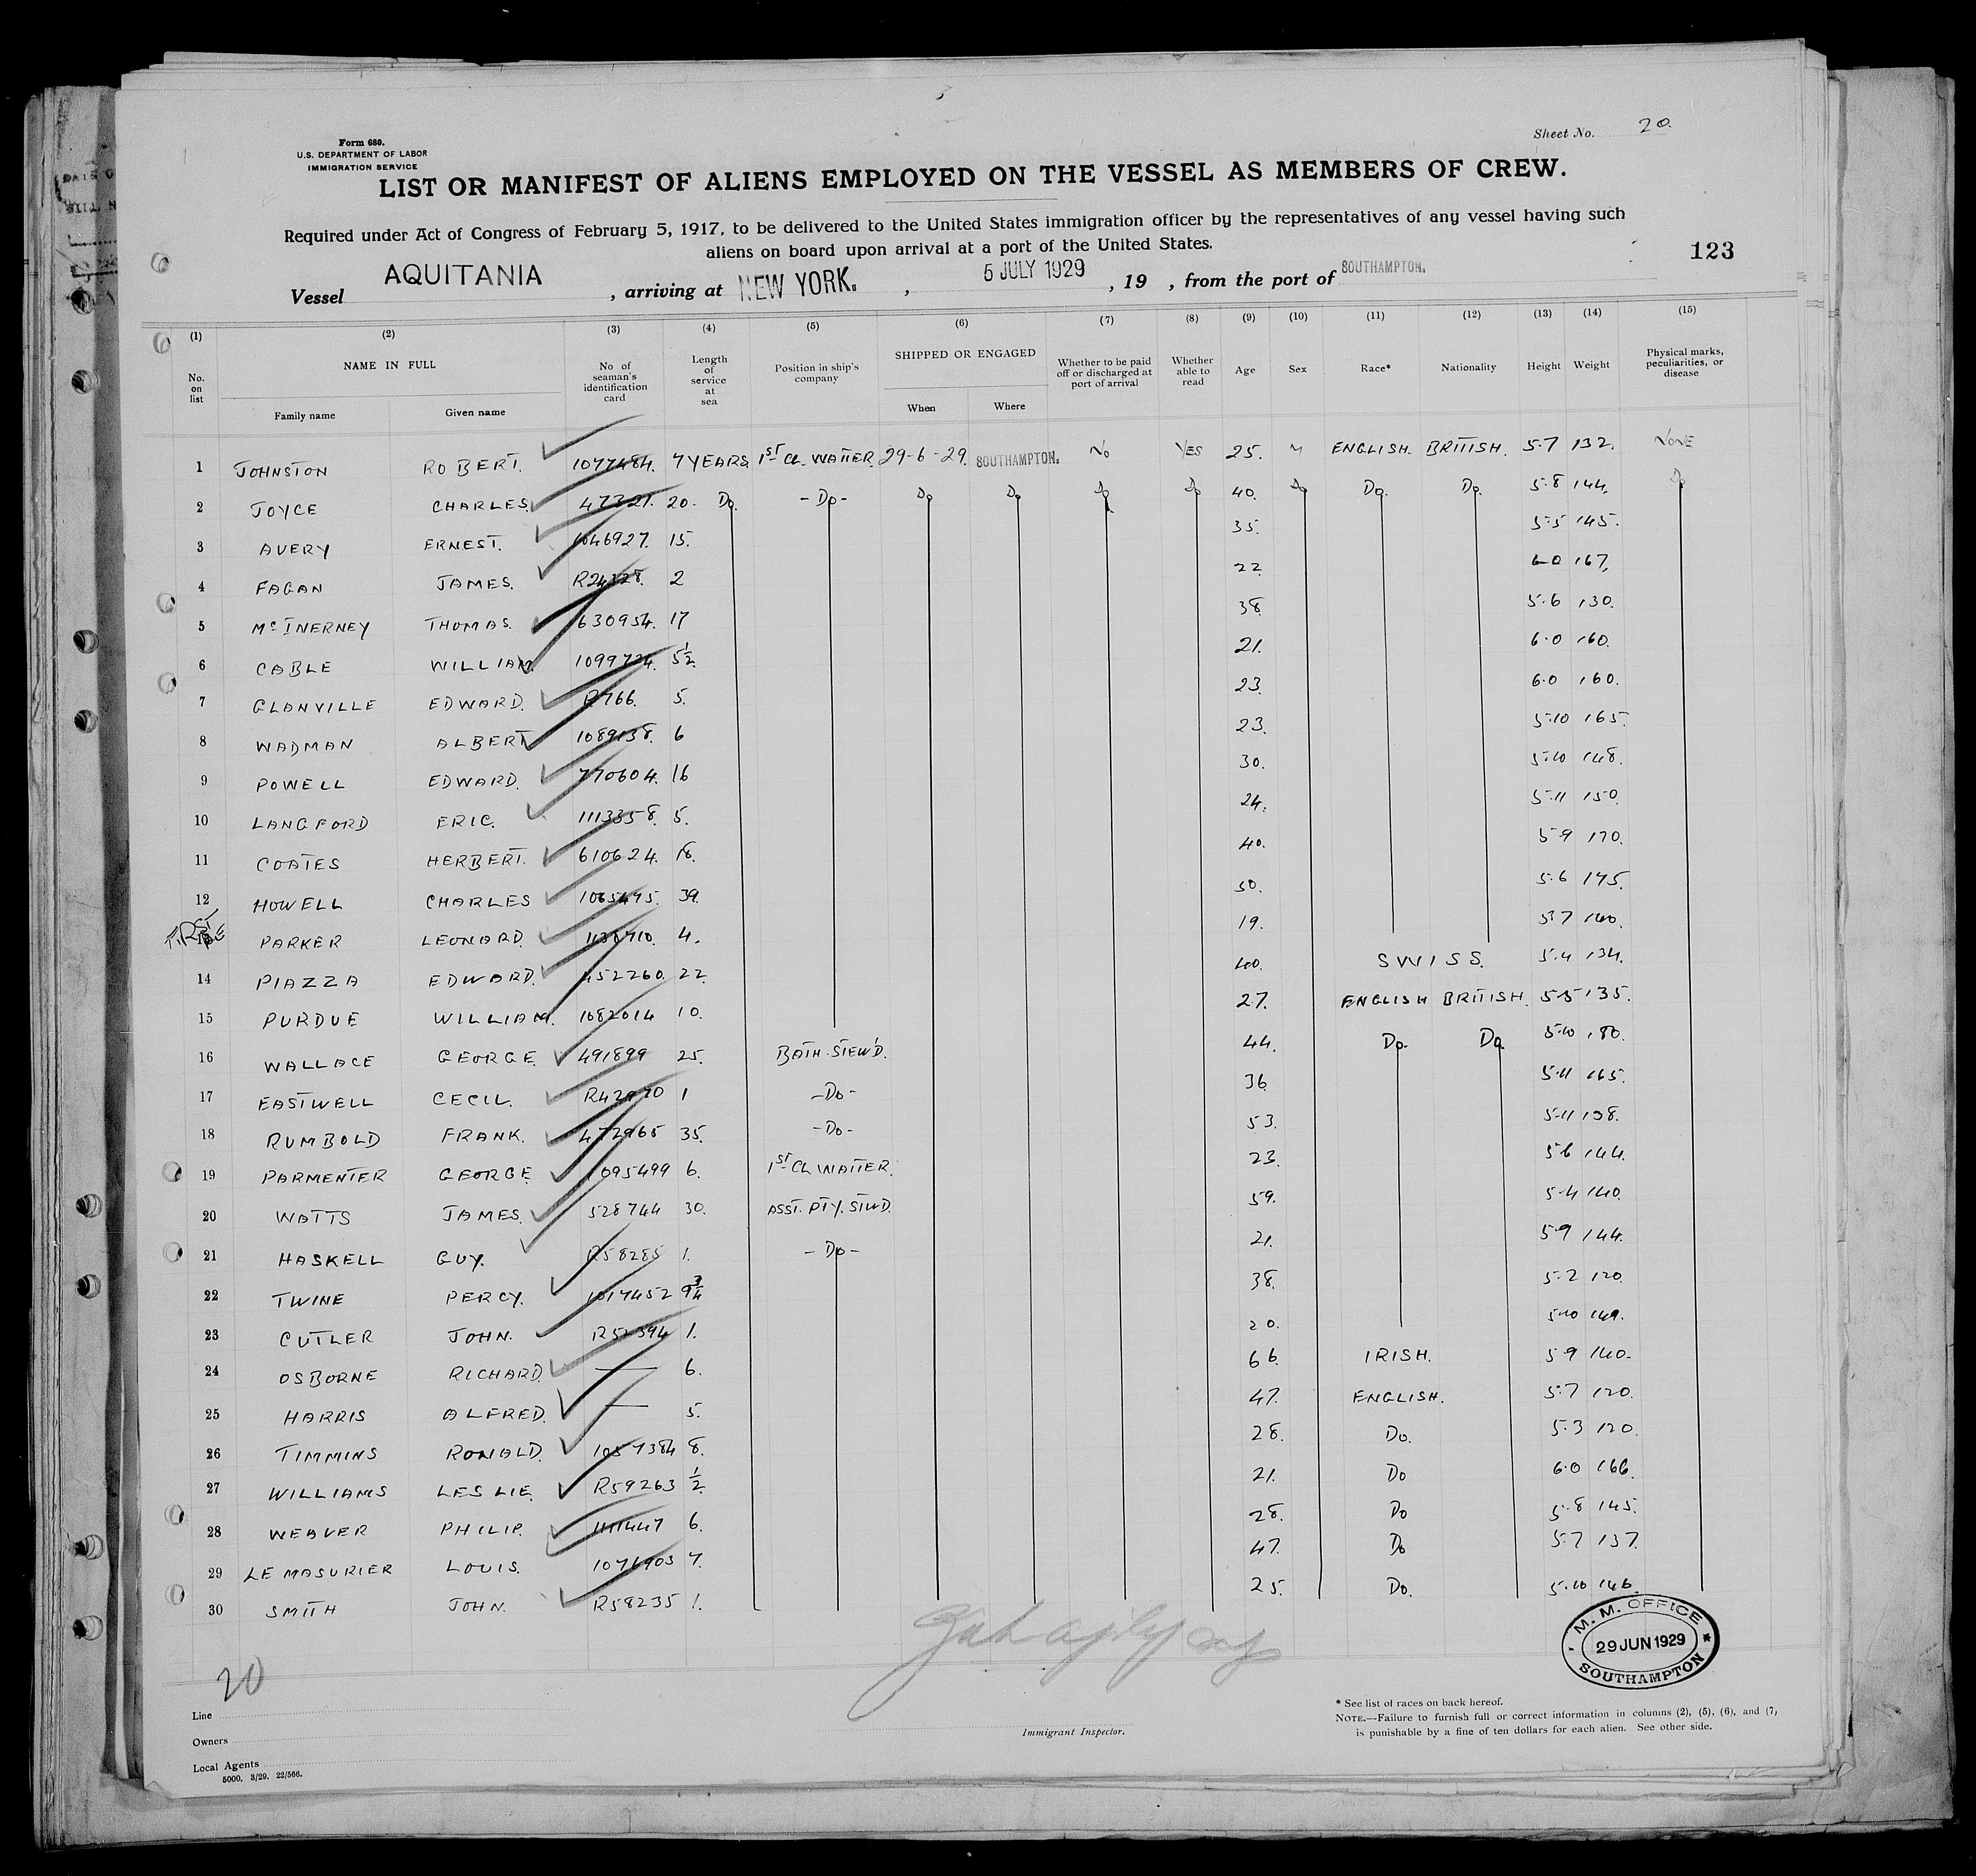 Form 680.
U.S. DEPARTMENT OF LABOR
IMMIGRATION SERVICE
Sheet No. 20.
LIST OR MANIFEST OF ALIENS EMPLOYED ON THE VESSEL AS MEMBERS OF CREW.
Required under Act of Congress of February 5, 1917, to be delivered to the United States immigration officer by the representatives of any vessel having such
aliens on board upon arrival at a port of the United States.
123
Vessel AQUITANIA, arriving at NEW YORK., 5 JULY 1929, 19 , from the port of SOUTHAMPTON.
(1) (2) (3) (4) (5) (6) (7) (8) (9) (10) (11) (12) (13) (14) (15)
No. on list NAME IN FULL No of seaman's identification card Length of service at sea Position in ship's company SHIPPED OR ENGAGED Whether to be paid off or discharged at port of arrival Whether able to read Age Sex Race* Nationality Height Weight Physical marks, peculiarities, or disease
Family name Given name When Where
1 JOHNSTON ROBERT. 1077484. 7 YEARS 1ST CL. WAITER. 29-6-29. SOUTHAMPTON. No YES 25. M ENGLISH. BRITISH. 5.7 132. NONE
2 JOYCE CHARLES. 47321. 20. Do. -Do- Do Do Do Do 40. Do Do. Do. 5.8 144. Do
3 AVERY ERNEST. 1046927. 15. 35. 5.5 145.
4 FAGAN JAMES. R24328. 2 22. 6-0 167.
5 McINERNEY THOMAS. 630954. 17 38 5.6 130.
6 CABLE WILLIAM. 1099724. 5½. 21. 6.0 160.
7 GLANVILLE EDWARD. R766. 5. 23. 6.0 160.
8 WADMAN ALBERT 1089138. 6 23. 5.10 165.
9 POWELL EDWARD. 770604. 16 30. 5.10 148.
10 LANGFORD ERIC. 1113358. 5. 24. 5.11 150.
11 COATES HERBERT. 610624. 18. 40. 5.9 170.
12 HOWELL CHARLES 1065495. 39. 50. 5.6 175.
PARKER LEONARD. 4. 19. 5.7 140.
14 PIAZZA EDWARD. 452260. 22. 40. SWISS. 5.4 134.
15 PURDUE WILLIAM. 1082014 10. 27. ENGLISH BRITISH. 5.5 135.
16 WALLACE GEORGE. 491899 25. BATH. STEW'D. 44. Do. Do. 5.10 180.
17 EASTWELL CECIL. 1 -Do- 36 5.11 165.
18 RUMBOLD FRANK. 472965 35. -Do- 53. 5.11 138.
19 PARMENTER GEORGE 1095499 6. 1ST CL WAITER. 23. 5.6 144.
20 WATTS JAMES. 528744 30. ASST. PTY. STWD. 59. 5.4 140.
21 HASKELL GUY. R58285 1. -Do- 21. 5.9 144.
22 TWINE PERCY. 1017452 9¾ 38. 5.2 120.
23 CUTLER JOHN. R52394 1. 20. 5.10 149.
24 OSBORNE RICHARD. — 6. 66. IRISH. 5.9 140.
25 HARRIS ALFRED. — 5. 47. ENGLISH. 5.7 120.
26 TIMMINS RONALD. 1057384 8. 28. Do. 5.3 120.
27 WILLIAMS LESLIE. R59263 ½ 21. Do 6.0 166.
28 WEAVER PHILIP. 1111447 6. 28. Do 5.8 145.
29 LE MASURIER LOUIS. 1076903 7. 47. Do 5.7 137.
30 SMITH JOHN. R58235 1. 25. Do. 5.10 146.
M. M. OFFICE
29 JUN 1929
SOUTHAMPTON
20
Line
Owners
Local Agents
5000. 3/29. 22/566.
Immigrant Inspector.
* See list of races on back hereof.
NOTE.—Failure to furnish full or correct information in columns (2), (5), (6), and (7)
is punishable by a fine of ten dollars for each alien. See other side.